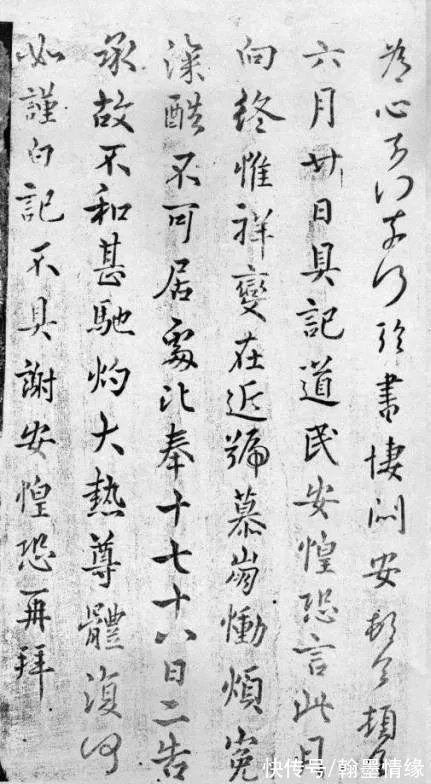 為心奈何奈何臨書悽悶安頓首頓首
六月廿日具記道民安惶恐言此月
向終惟祥變在近號慕崩慟煩冤
深酷不可居處比奉十七十八日二告
承故不和甚馳灼大熱尊體復何
如謹白記不具謝安惶恐再拜
快传号/翰墨情缘